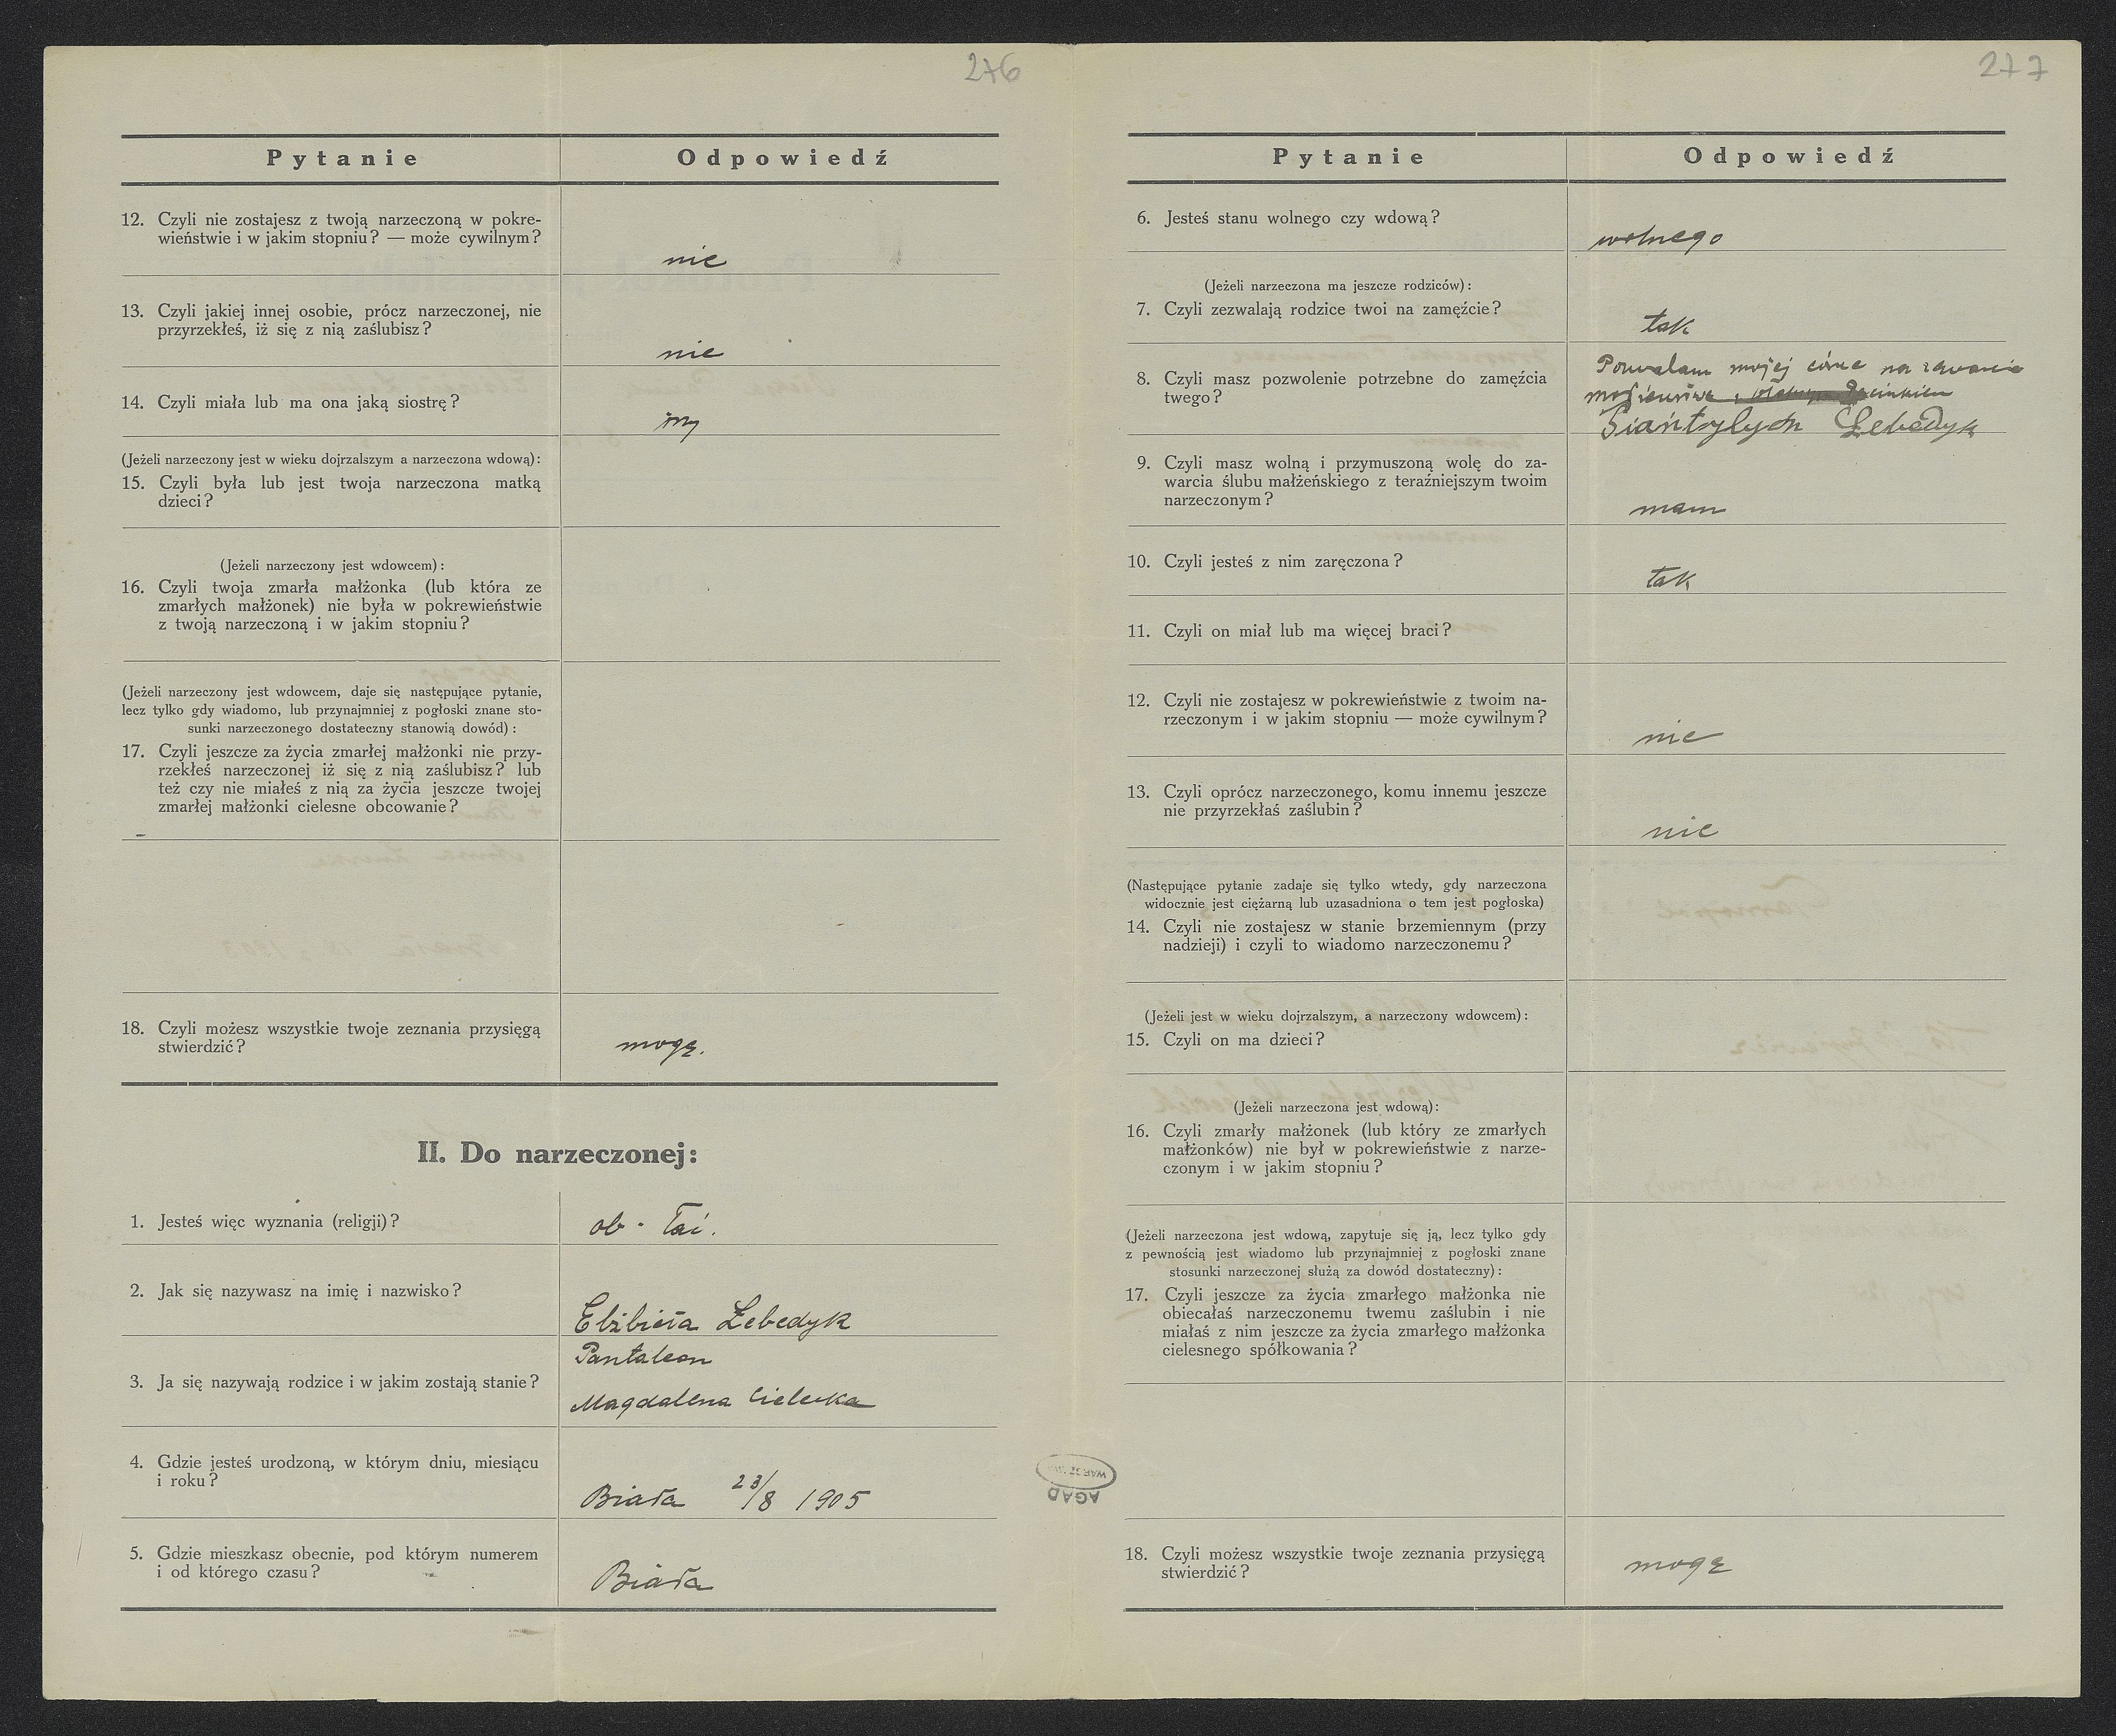 276
Pytanie Odpowiedź
12. Czyli nie zostajesz z twoją narzeczoną w pokre-
wieństwie i w jakim stopniu? — może cywilnym?
nie
13. Czyli jakiej innej osobie, prócz narzeczonej, nie
przyrzekłeś, iż się z nią zaślubisz?
nie
14. Czyli miała lub ma ona jaką siostrę?
(Jeżeli narzeczony jest w wieku dojrzalszym a narzeczona wdową):
15. Czyli była lub jest twoja narzeczona matką
dzieci?
(Jeżeli narzeczony jest wdowcem):
16. Czyli twoja zmarła małżonka (lub która ze
zmarłych małżonek) nie była w pokrewieństwie
z twoją narzeczoną i w jakim stopniu?
(Jeżeli narzeczony jest wdowcem, daje się następujące pytanie,
lecz tylko gdy wiadomo, lub przynajmniej z pogłoski znane sto-
sunki narzeczonego dostateczny stanowią dowód):
17. Czyli jeszcze za życia zmarłej małżonki nie przy-
rzekłeś narzeczonej iż się z nią zaślubisz? lub
też czy nie miałeś z nią za życia jeszcze twojej
zmarłej małżonki cielesne obcowanie?
18. Czyli możesz wszystkie twoje zeznania przysięgą
stwierdzić?
mogę.
II. Do narzeczonej:
1. Jesteś więc wyznania (religji)?
ob. łać.
2. Jak się nazywasz na imię i nazwisko?
Elżbieta Łebedyk
Pantaleon
3. Ja się nazywają rodzice i w jakim zostają stanie?
Magdalena Cielecka
4. Gdzie jesteś urodzoną, w którym dniu, miesiącu
i roku?
Biała 23/8 1905
5. Gdzie mieszkasz obecnie, pod którym numerem
i od którego czasu?
Biała
AGAD
WARSZAWA
277
Pytanie Odpowiedź
6. Jesteś stanu wolnego czy wdową?
wolnego
(Jeżeli narzeczona ma jeszcze rodziców):
7. Czyli zezwalają rodzice twoi na zamęźcie?
tak
8. Czyli masz pozwolenie potrzebne do zamęźcia
twego?
Pozwalam mojej córce na zawarcie
Łebedyk
9. Czyli masz wolną i przymuszoną wolę do za-
warcia ślubu małżeńskiego z teraźniejszym twoim
narzeczonym?
mam
10. Czyli jesteś z nim zaręczona?
tak
11. Czyli on miał lub ma więcej braci?
12. Czyli nie zostajesz w pokrewieństwie z twoim na-
rzeczonym i w jakim stopniu — może cywilnym?
nie
13. Czyli oprócz narzeczonego, komu innemu jeszcze
nie przyrzekłaś zaślubin?
nie
(Następujące pytanie zadaje się tylko wtedy, gdy narzeczona
widocznie jest ciężarną lub uzasadniona o tem jest pogłoska)
14. Czyli nie zostajesz w stanie brzemiennym (przy
nadzieji) i czyli to wiadomo narzeczonemu?
(Jeżeli jest w wieku dojrzalszym, a narzeczony wdowcem):
15. Czyli on ma dzieci?
(Jeżeli narzeczona jest wdową):
16. Czyli zmarły małżonek (lub który ze zmarłych
małżonków) nie był w pokrewieństwie z narze-
czonym i w jakim stopniu?
(Jeżeli narzeczona jest wdową, zapytuje się ją, lecz tylko gdy
z pewnością jest wiadomo lub przynajmniej z pogłoski znane
stosunki narzeczonej służą za dowód dostateczny):
17. Czyli jeszcze za życia zmarłego małżonka nie
obiecałaś narzeczonemu twemu zaślubin i nie
miałaś z nim jeszcze za życia zmarłego małżonka
cielesnego spółkowania?
18. Czyli możesz wszystkie twoje zeznania przysięgą
stwierdzić?
mogę